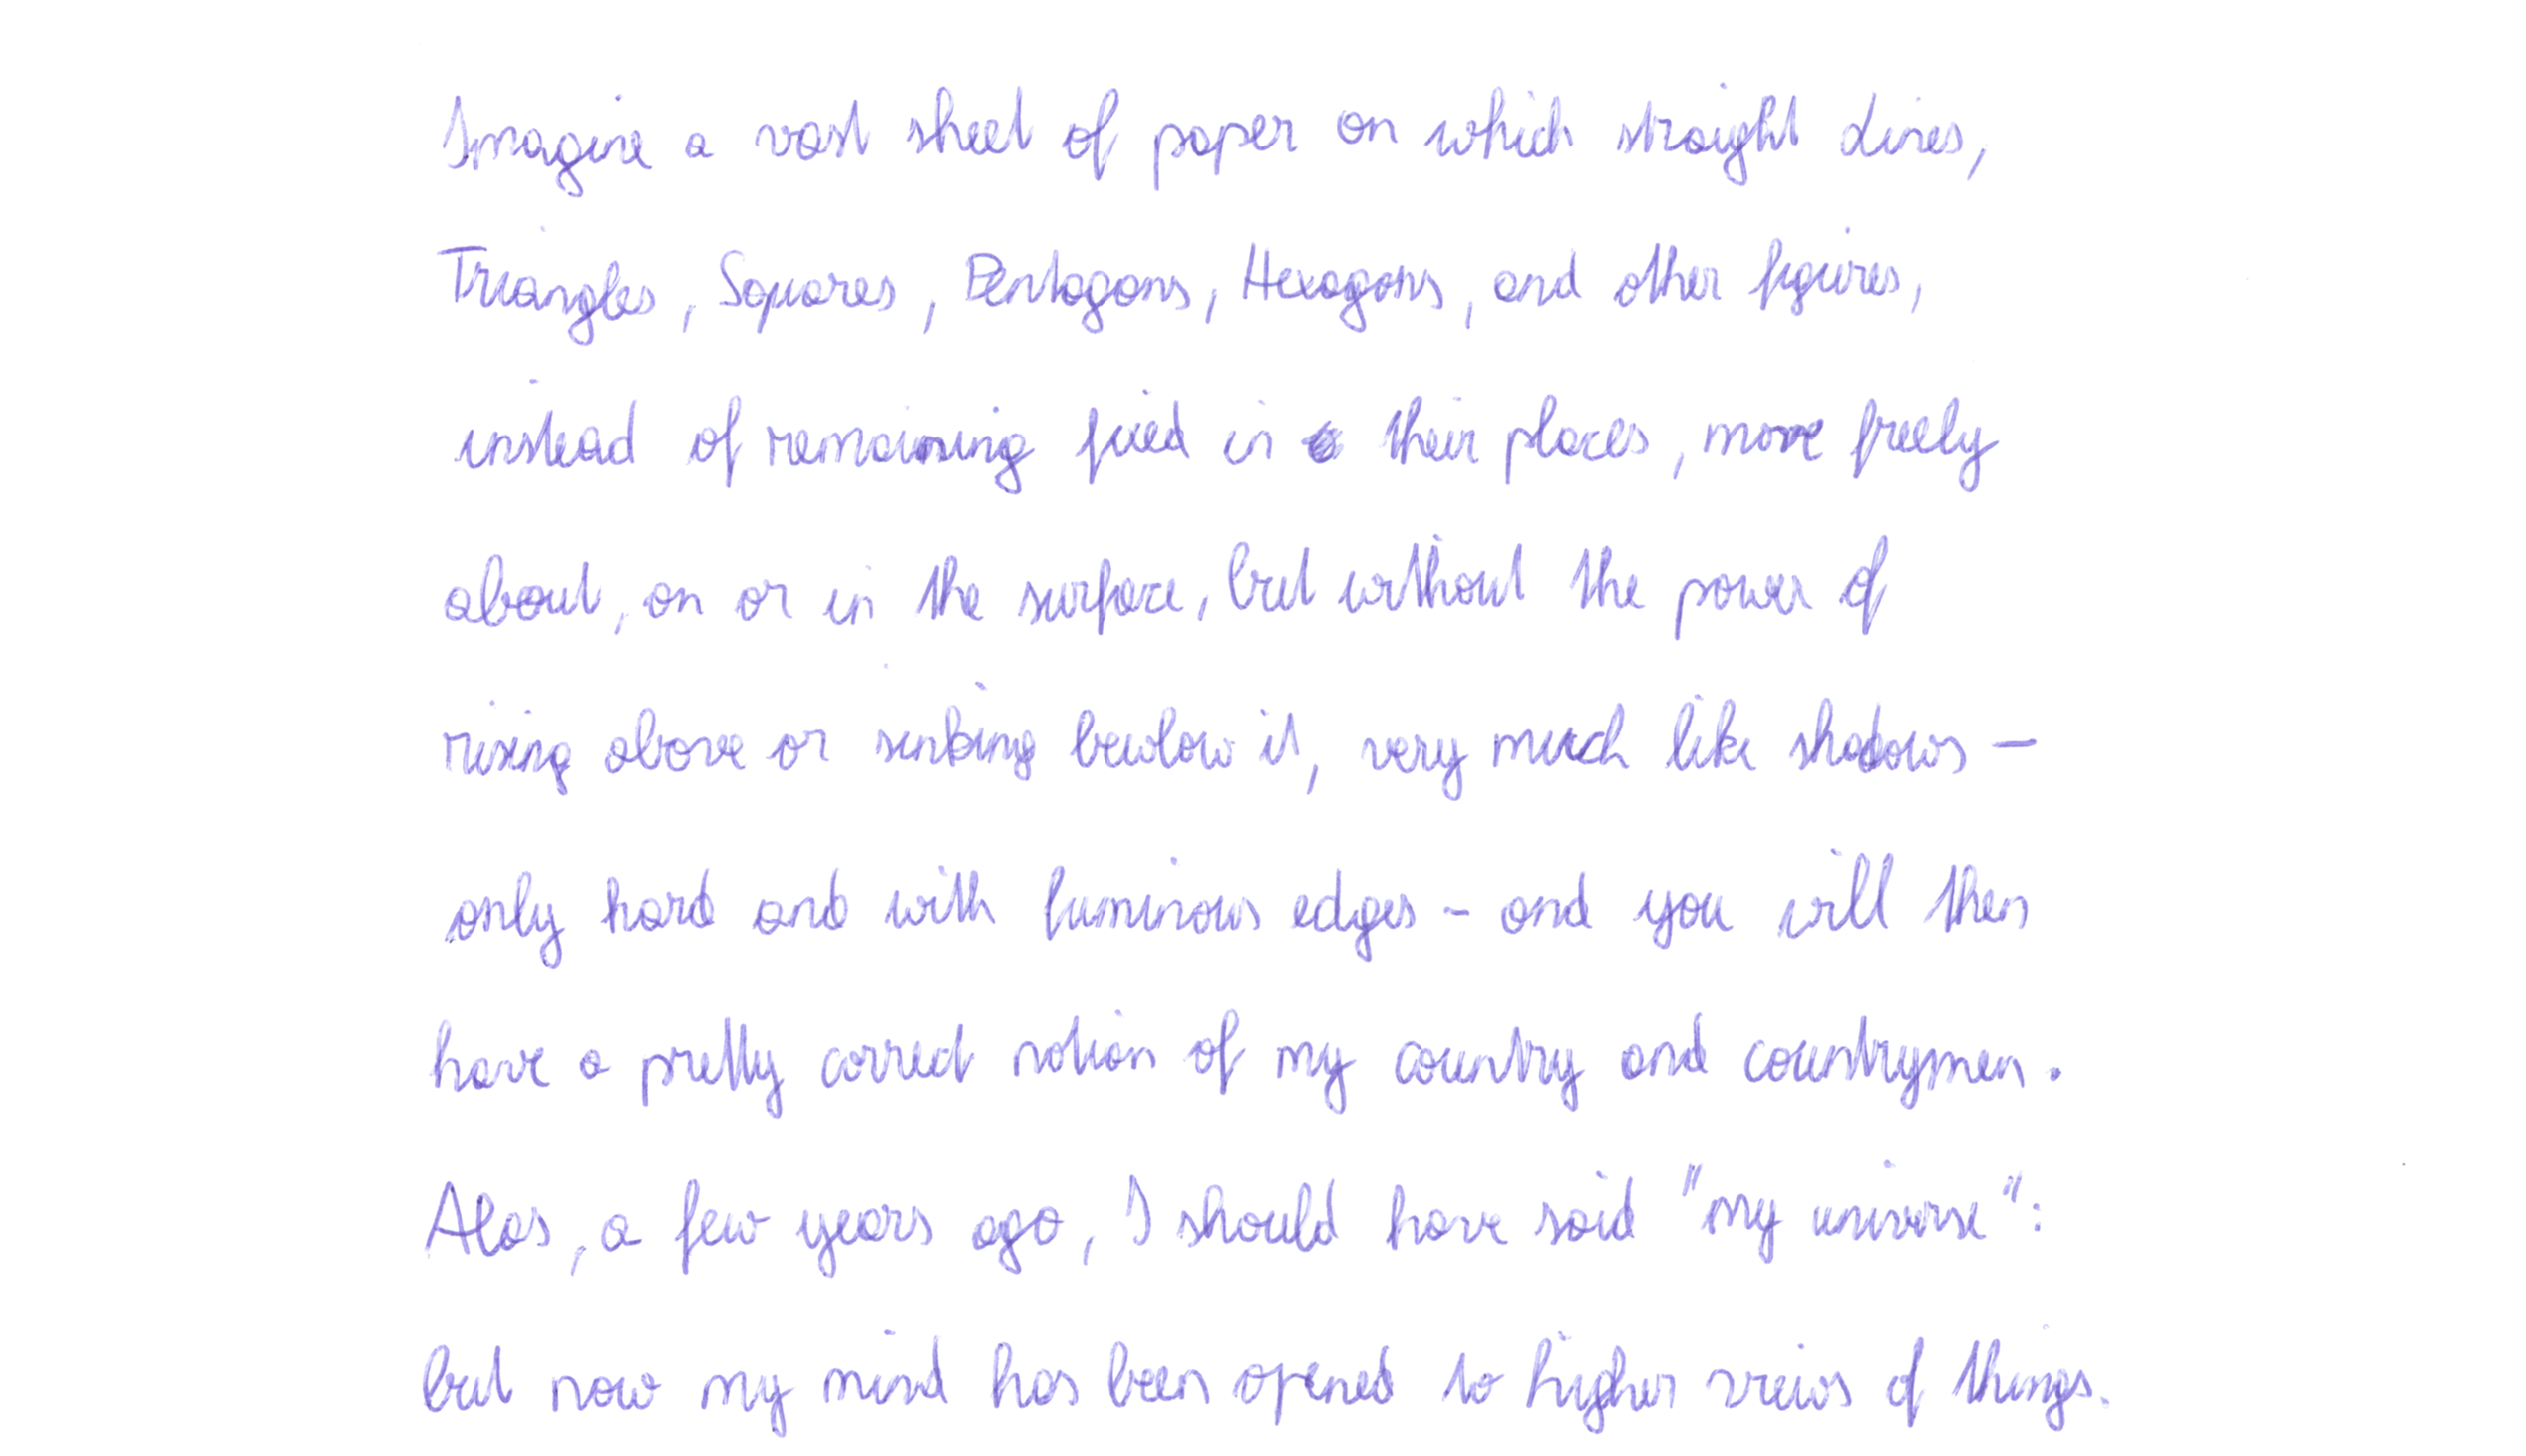 Imagine a vast sheet of paper on which straight Lines,
Triangles, Squares, Pentagons, Hexagons, and other figures,
instead of remaining fixed in their places, move freely
about, on or in the surface, but without the power of
rising above or sinking bewlow it, very much like shadows –
only hard and with luminous edges - and you will then
have a pretty correct notion of my country and countrymen.
Alas, a few years ago, I should have said "my universe":
but now my mind has been opened to higher views of things.